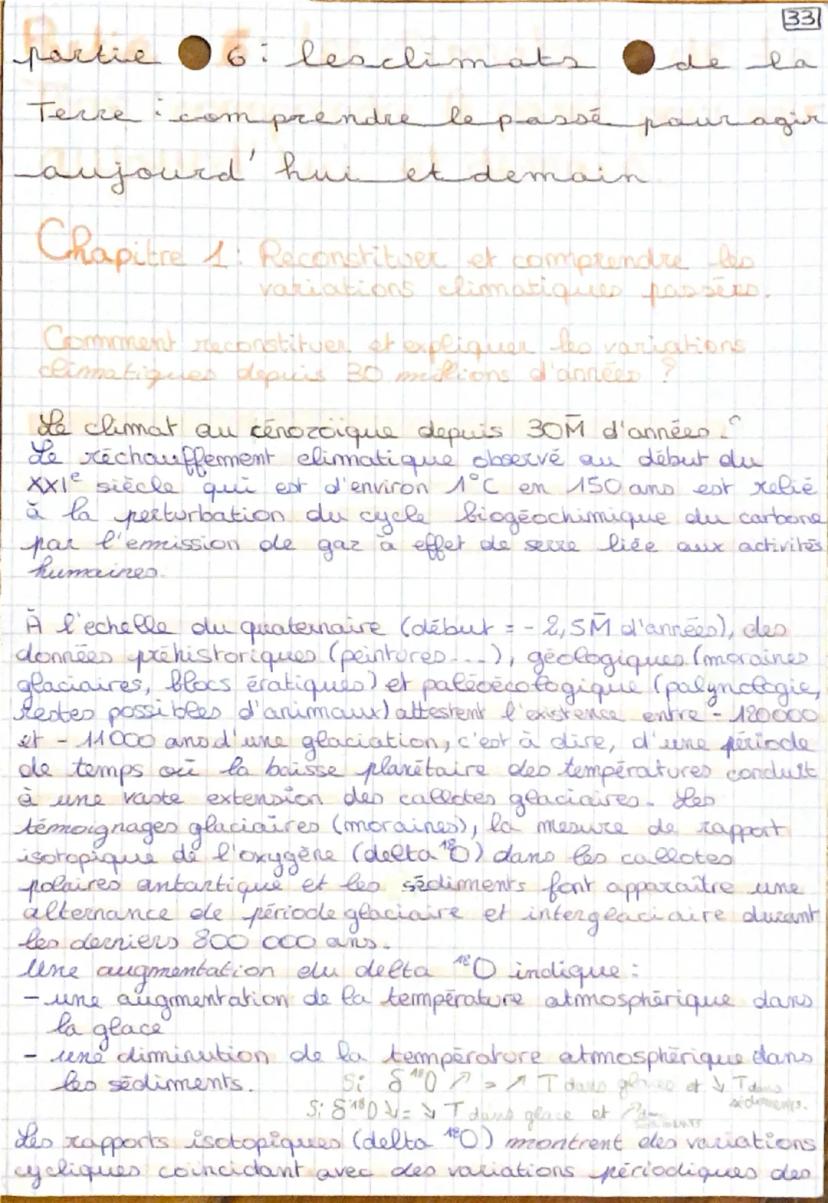 33
partie 6 : les climats de la
Terre : comprendre le passé pour agir
aujourd'hui et demain
Chapitre 1 : Reconstituer et comprendre les
variations climatiques passées.
Commment reconstituer et expliquer les variations
climatiques depuis 30 millions d'années ?
Le climat au cénozoïque depuis 30M̄ d'années.
Le réchauffement climatique observé au début du
XXIe siècle qui est d'environ 1°C en 150 ans est relié
à la perturbation du cycle biogéochimique du carbone
par l'emission de gaz à effet de serre liée aux activités
humaines.
À l'echelle du quaternaire (début = - 2,5M̄ d'années), des
données préhistoriques (peintures...), géologiques (moraines
glaciaires, blocs ératiques) et paléoécologique (palynologie,
restes possibles d'animaux) attestent l'existence entre - 120000
et - 11000 ans d'une glaciation, c'est à dire, d'une période
de temps où la baisse planétaire des températures conduit
à une vaste extension des calottes glaciaires. Les
témoignages glaciaires (moraines), la mesure de rapport
isotopique de l'oxygène (delta ¹⁸O) dans les callotes
polaires antartique et les sédiments font apparaître une
alternance de période glaciaire et interglaciaire durant
les derniers 800 000 ans.
Une augmentation du delta ¹⁸O indique :
- une augmentation de la température atmosphérique dans
la glace
- une diminution de la température atmosphérique dans
les sédiments.
Si δ¹⁸O ↗ = ↗ T dans glaces et ↘ T dans sédiments.
Si δ¹⁸O ↘ = ↘ T dans glace et ↗ dans sédiments
Les rapports isotopiques (delta ¹⁸O) montrent des variations
cycliques coincidant avec des variations périodiques des